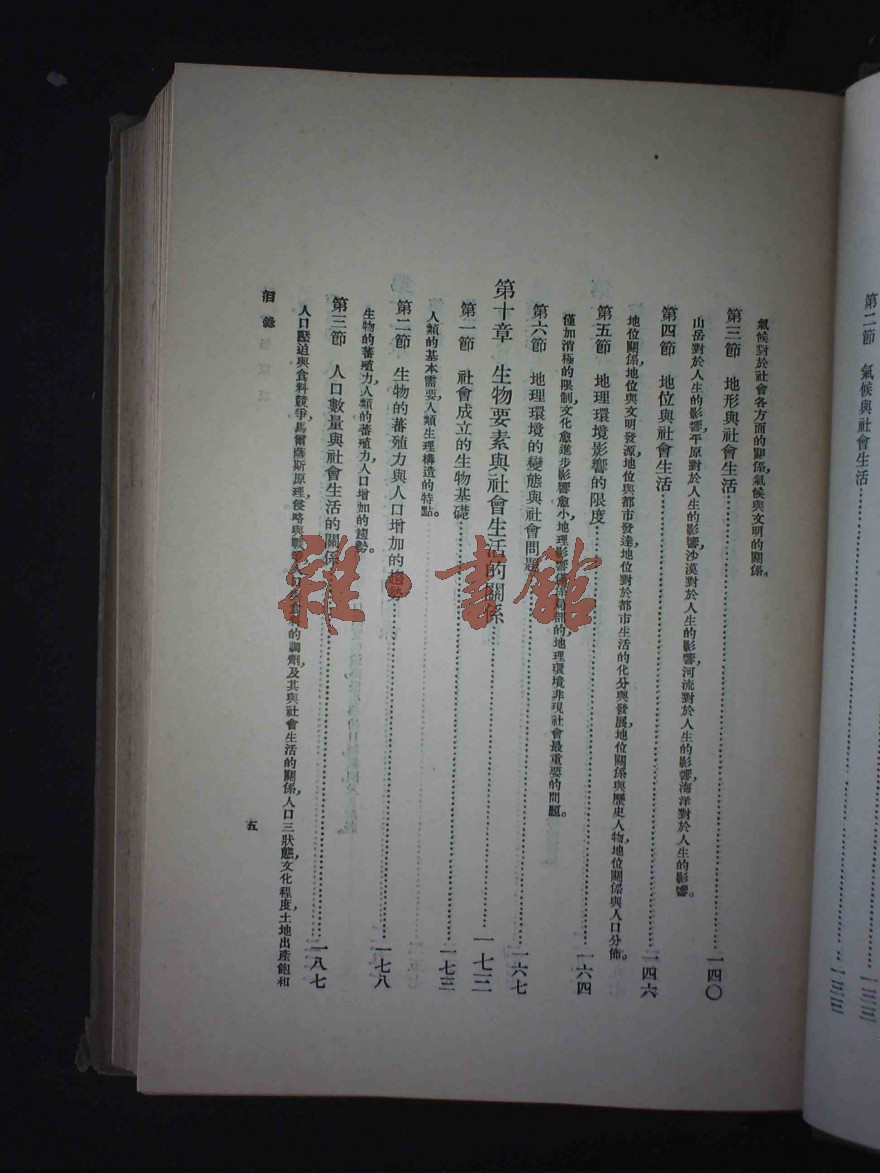 第二節　氣候與社會生活
氣候對於社會各方面的關係，氣候與文明的關係。
第三節　地形與社會生活……一四〇
山岳對於人生的影響，平原對於人生的影響，沙漠對於人生的影響，河流對於人生的影響，海洋對於人生的影響。
第四節　地位與社會生活……一四六
地位關係，地位與文明發源，地位與都市發達，地位對於都市生活的化分與發展，地位關係與歷史人物，地位關係與人口分佈。
第五節　地理環境影響的限度……一六四
僅加消極的限制，文化愈進步影響愈小，地理影響僅係局部的，地理環境非現社會最重要的問題。
第六節　地理環境的變態與社會問題……一六七
第十章　生物要素與社會生活的關係……一七三
第一節　社會成立的生物基礎……一七三
人類的基本需要，人類生理構造的特點。
第二節　生物的蕃殖力與人口增加的趨勢……一七八
生物的蕃殖力，人類的蕃殖力，人口增加的趨勢。
第三節　人口數量與社會生活的關係……一八七
人口壓迫與食料競爭，馬爾薩斯原理，侵略與戰爭，人口與食料的調劑及其與社會生活的關係，人口三狀態，文化程度，土地出產飽和
目錄
五
雜·書館